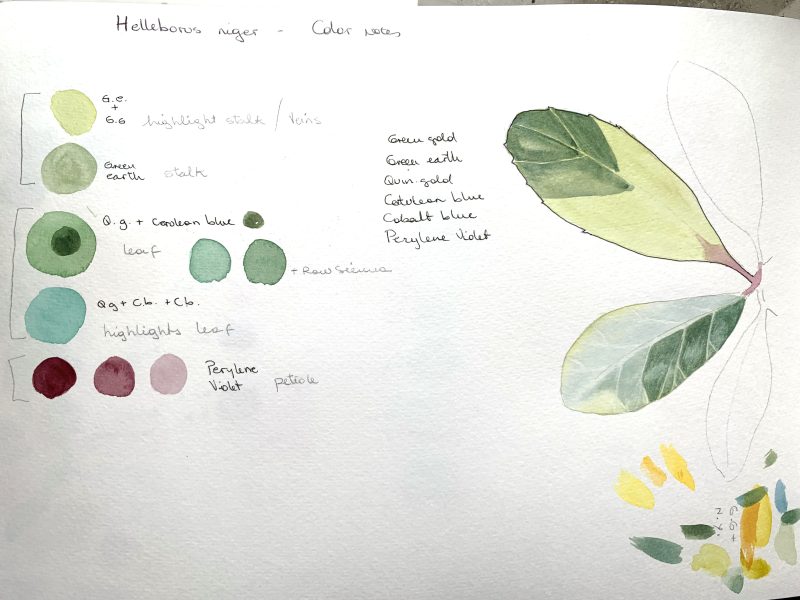 Helleborus niger - Color notes
G.e.
+
G.G highlight stalk / Veins
Green
earth stalk
Q.g. + Cerulean blue
leaf
+ Raw Sienna
Qg + C.b. + C.b.
highlights leaf
Perylene
Violet petiole
Green gold
Green earth
Quin. gold
Cerulean blue
Cobalt blue
Perylene Violet